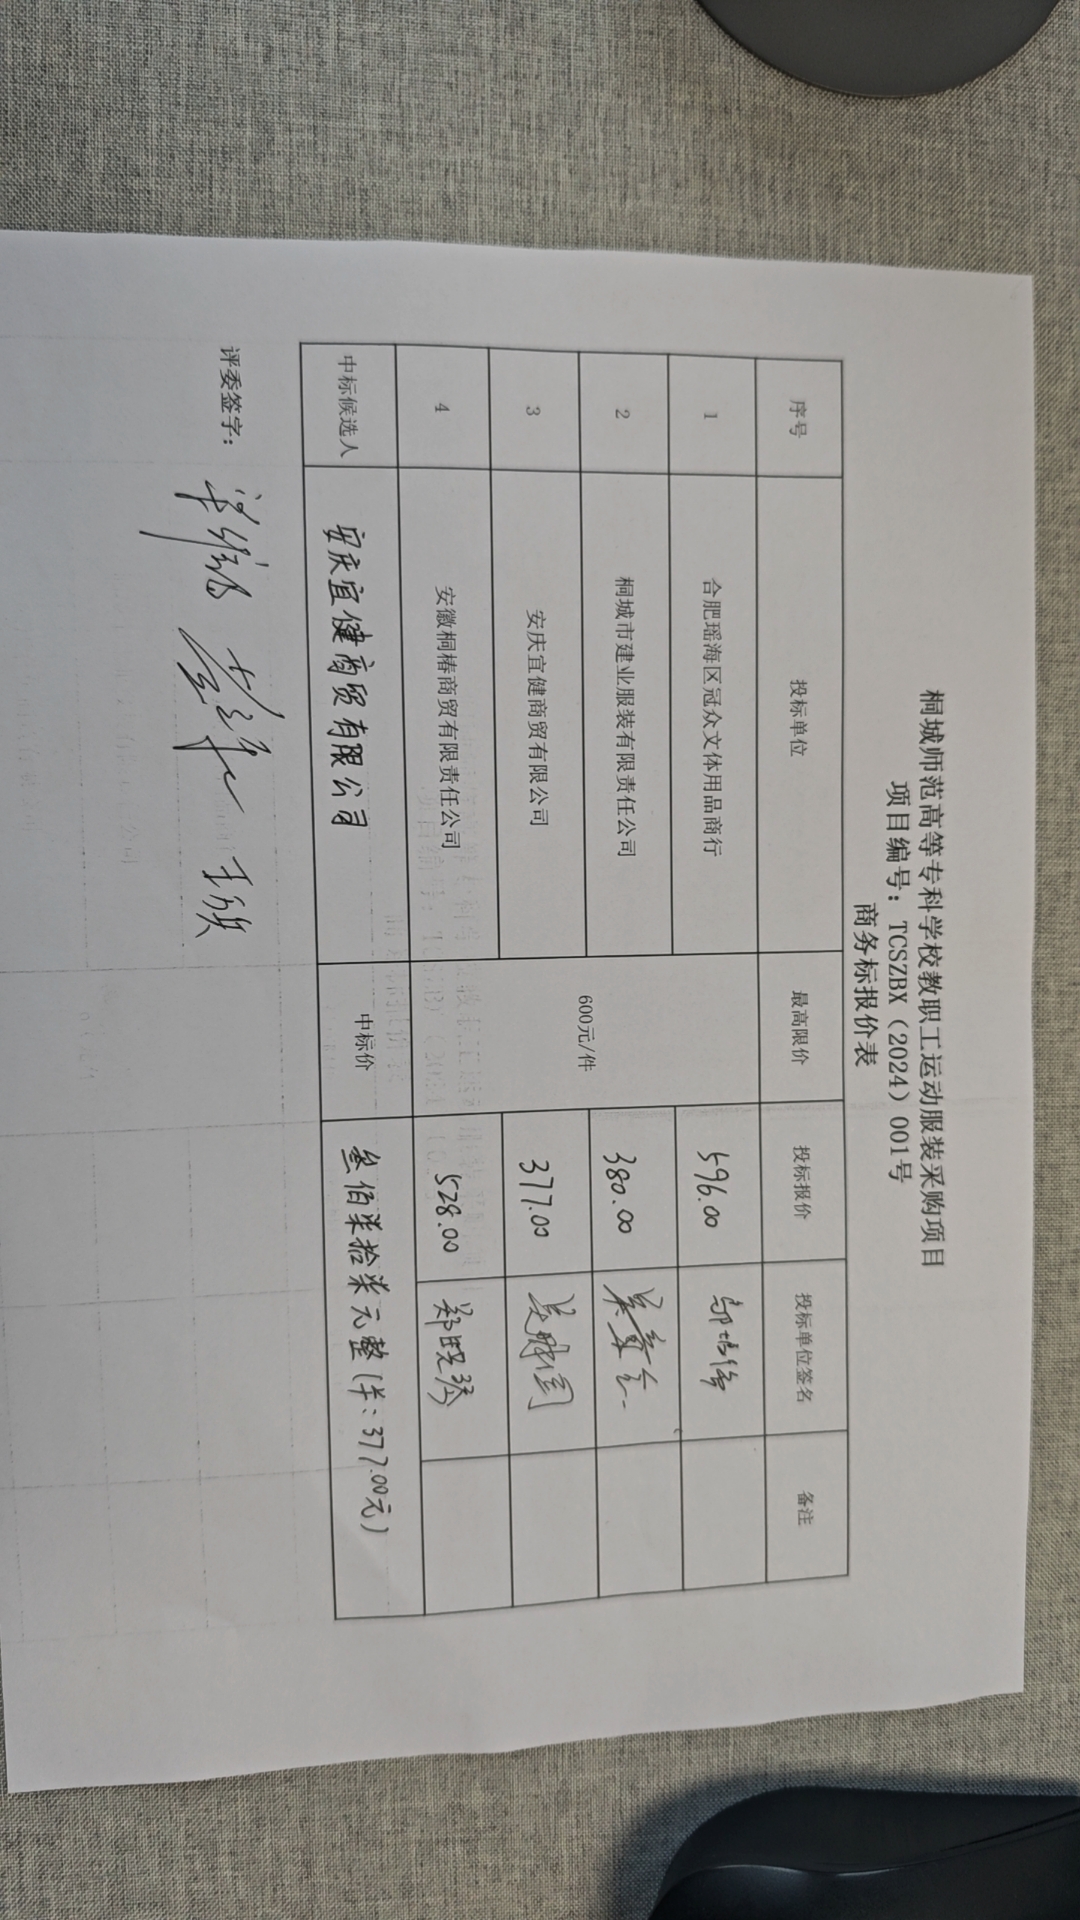 桐城师范高等专科学校教职工运动服装采购项目
项目编号：TCSZBX（2024）001号
商务标报价表
序号 投标单位 最高限价 投标报价 投标单位签名 备注
1 合肥瑶海区冠众文体用品商行 596.00
2 桐城市建业服装有限责任公司 600元/件 380.00
3 安庆宜健商贸有限公司 377.00
4 安徽桐椿商贸有限责任公司 528.00
中标候选人 安庆宜健商贸有限公司 中标价 叁佰柒拾柒元整（¥：377.00元）
评委签字：